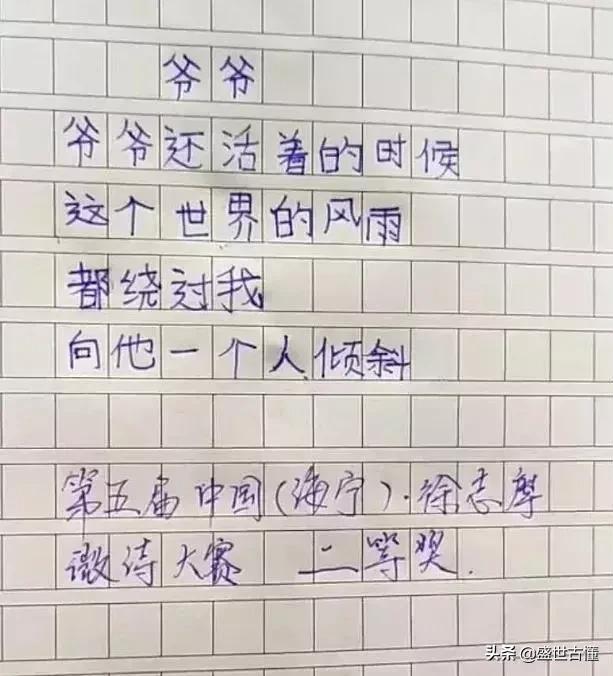 爷爷
爷爷还活着的时候
这个世界的风雨
都绕过我
向他一个人倾斜
第五届中国(海宁)·徐志摩
微诗大赛 二等奖.
头条 @盛世古懂